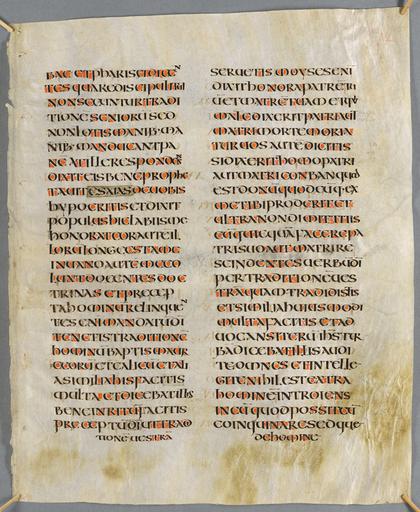 TES QUARE DISCIPULI TUI
NON SECUNTUR TRADI
TIONE SENIORU SED
NIB· MANDUCANT PA
NE AT ILLE RESPONDEN
DIXIT EIS BENE PROPHE
TAUIT ESAIAS DE UOBIS
HYPOCRITIS ET DIXIT
POPULUS HIC LABIIS ME
HONORAT COR AUTE IL
LORU LONGE EST A ME
IN UANO AUTE ME CO
LUNT DOCENTES DOC
TRINAS ET PRECEP
TA HOMINU RELINQUEN
TES ENI MANDATU DI
TENETIS TRADITIONE
HOMINU BAPTISMA UR
CEORU ET CALICU ET ALI
A SIMILIA HIS FACITIS
MULTA ET DICEBAT ILLIS
BENE INRITU FACITIS
PRECEPTU DI UT TRAD
TIONE UESTRA
SERUETIS MOYSES ENI
DIXIT HONORA PATRE TU
MALEDIXERIT PATRI AUT
MATRI MORTE MORIA
TUR UOS AUTE DICITIS
SI DIXERIT HOMO PATRI
AUT MATRI CORBAN QUOD
EST DONU QUODCUQ· EX
ME TIBI PRODERIT ET
ULTRA NON DIMITTITIS
EU QUICQUA FACERE PA
TRI SUO AUT MATRI RE
SCINDENTES UERBU DI
PER TRADITIONE UES
TRA QUAM TRADIDISTIS
ET SIMILIA HUIUSMODI
MULTA FACITIS ET AD
UOCANS ITERU TURBA
DICEBAT ILLIS AUDI
TE OMNES ET INTELLE
GITE NIHIL EST EXTRA
HOMINE INTROIENS
IN EU QUOD POSSIT EU
COINQUINARE SED QUE
DE HOMINE